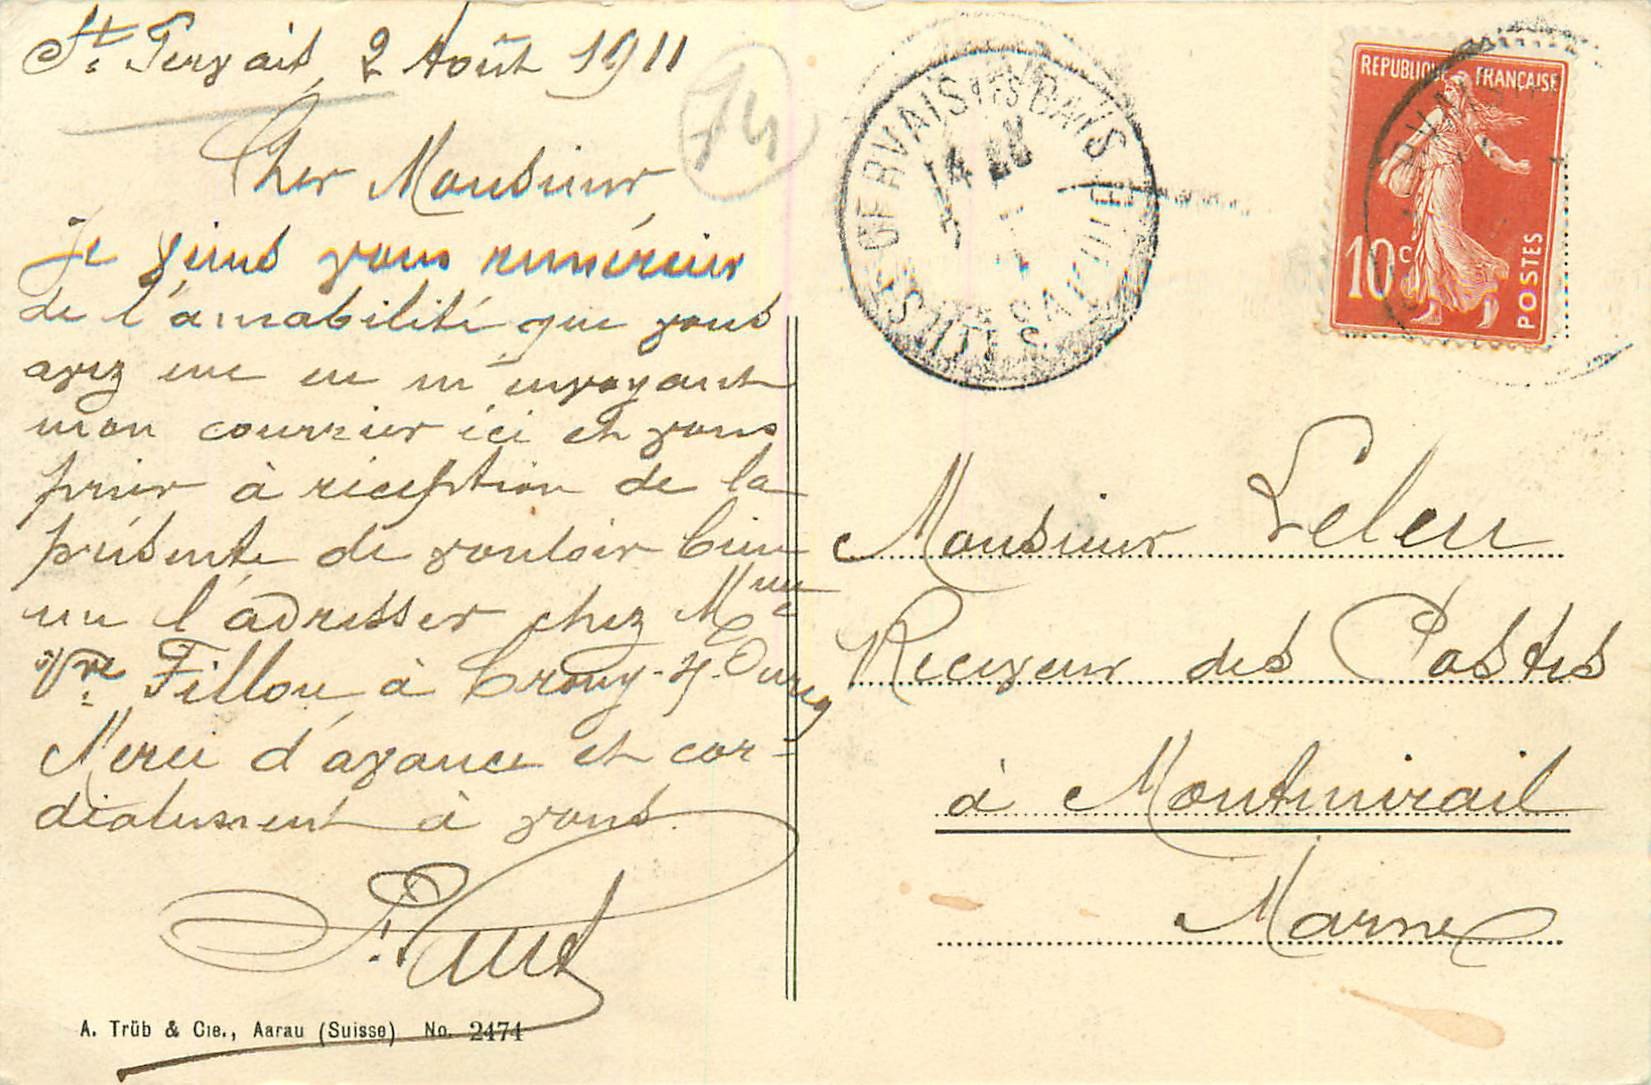 St. Gervais, 2 Août 1911
74
Cher Monsieur
Je viens vous remercier
de l'amabilité que vous
avez eue en m'envoyant
mon courrier ici et vous
prier à réception de la
présente de vouloir bien
me l'adresser chez Mme
Vve Fillou à Crouy-s/-Ourcq
Merci d'avance et cor-
dialement à vous.
A. Trüb & Cie., Aarau (Suisse) No. 2474
ST GERVAIS LES BAINS
HTE SAVOIE
REPUBLIQUE FRANÇAISE
10c
POSTES
Monsieur Leleu
Receveur des Postes
à Montmirail
Marne